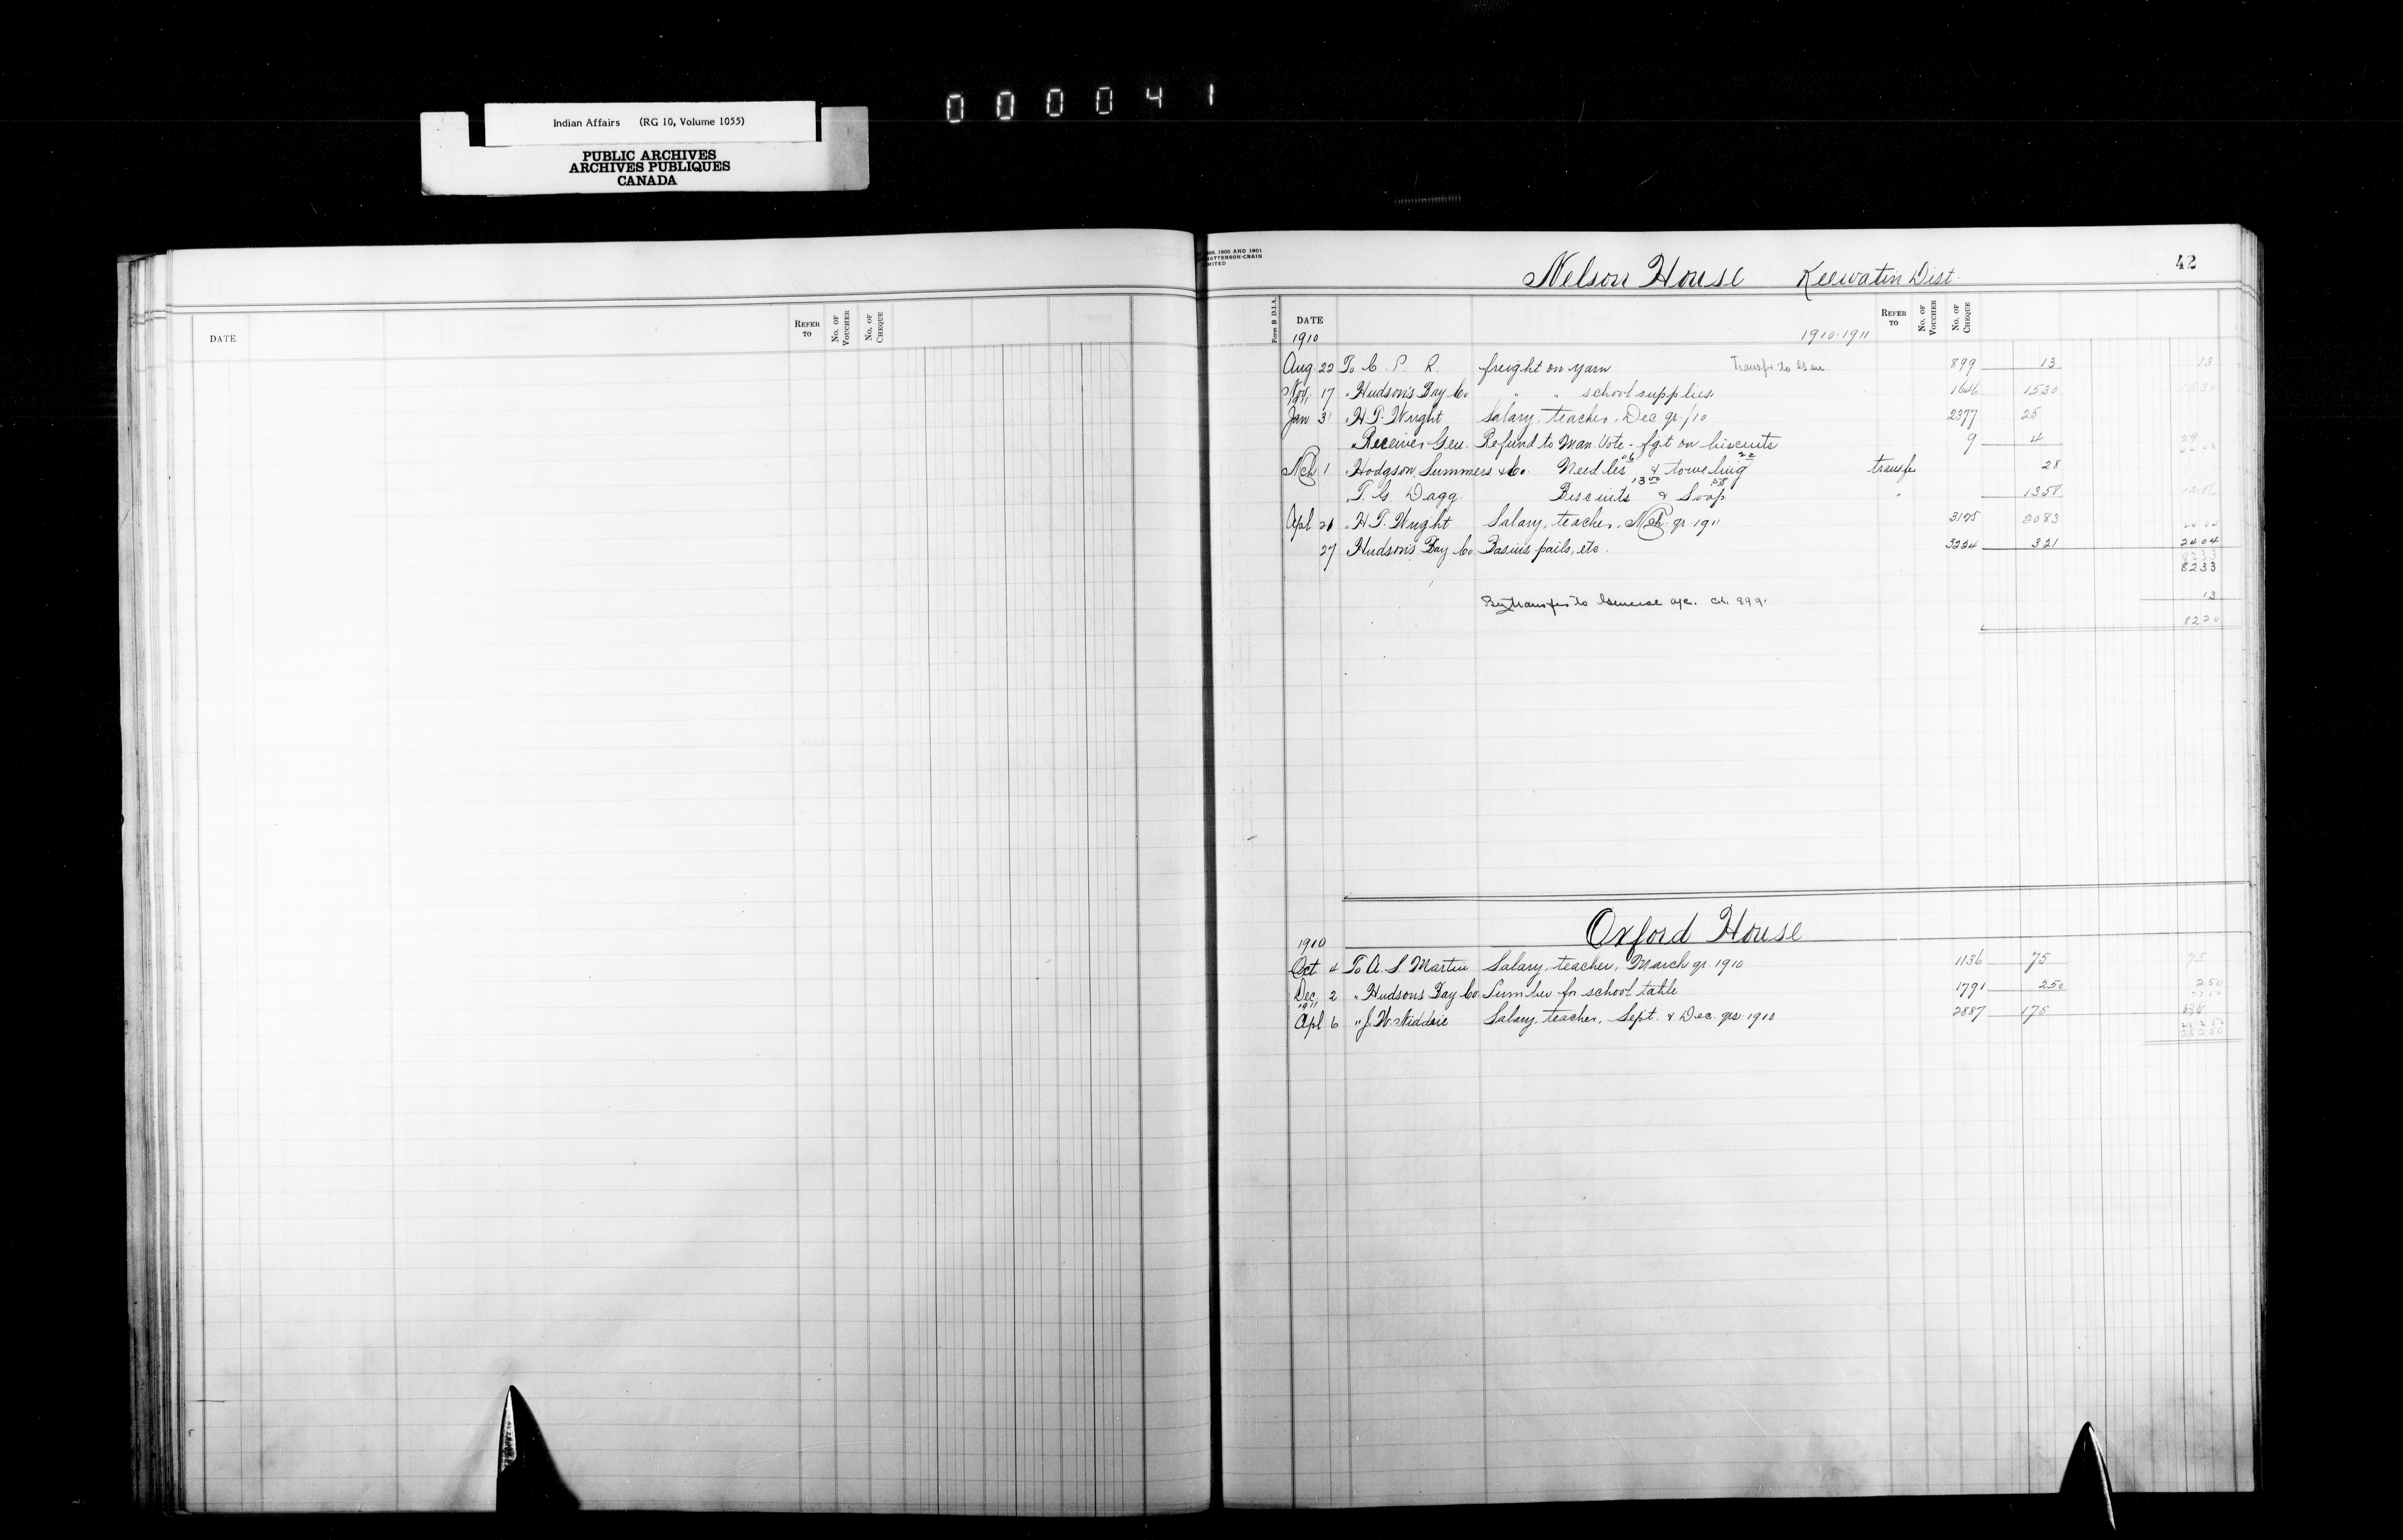 000041
Indian Affairs (RG 10, Volume 1055)
PUBLIC ARCHIVES
ARCHIVES PUBLIQUES
CANADA
DATE REFER TO No. OF VOUCHER No. OF CHEQUE
1900 AND 1901
Nelson House Keewatin Dist. 42
Form B D.I.A. DATE REFER TO No. OF VOUCHER No. OF CHEQUE
1910 1910-1911
Aug 22 To C. P. R. freight on yarn Transfer to Gen 899 13 13
Nov. 17 " Hudson's Bay Co " " school supplies 1646 1530 1530
1911
Jan 31 " H. T. Wright Salary, teacher, Dec qr/10 2377 25
" Receiver Gen. Refund to Man. Vote - fgt on biscuits 9 4
Mch 1 " Hodgson Summers & Co. Needles 06 & toweling 22 transfer 28
" T. G. Dagg. Biscuits 13 00 & Soap 58 " 1358
Apl 21 " H T. Wright Salary, teacher, Mch. qr. 1911 3175 2083
27 Hudson's Bay Co Basins pails, etc. 3224 321 2404
8233
8233
By transfer to General a/c. Ch. 899. 13
8220
Oxford House
1910
Oct 4 To A. S. Martin Salary, teacher, March qr. 1910 1136 75 75
Dec. 2 " Hudsons Bay Co Lumber for school table 1791 250 250
1911
Apl 6 " J. W. Niddrie Salary, teacher, Sept. & Dec. qrs 1910 2887 175
25250